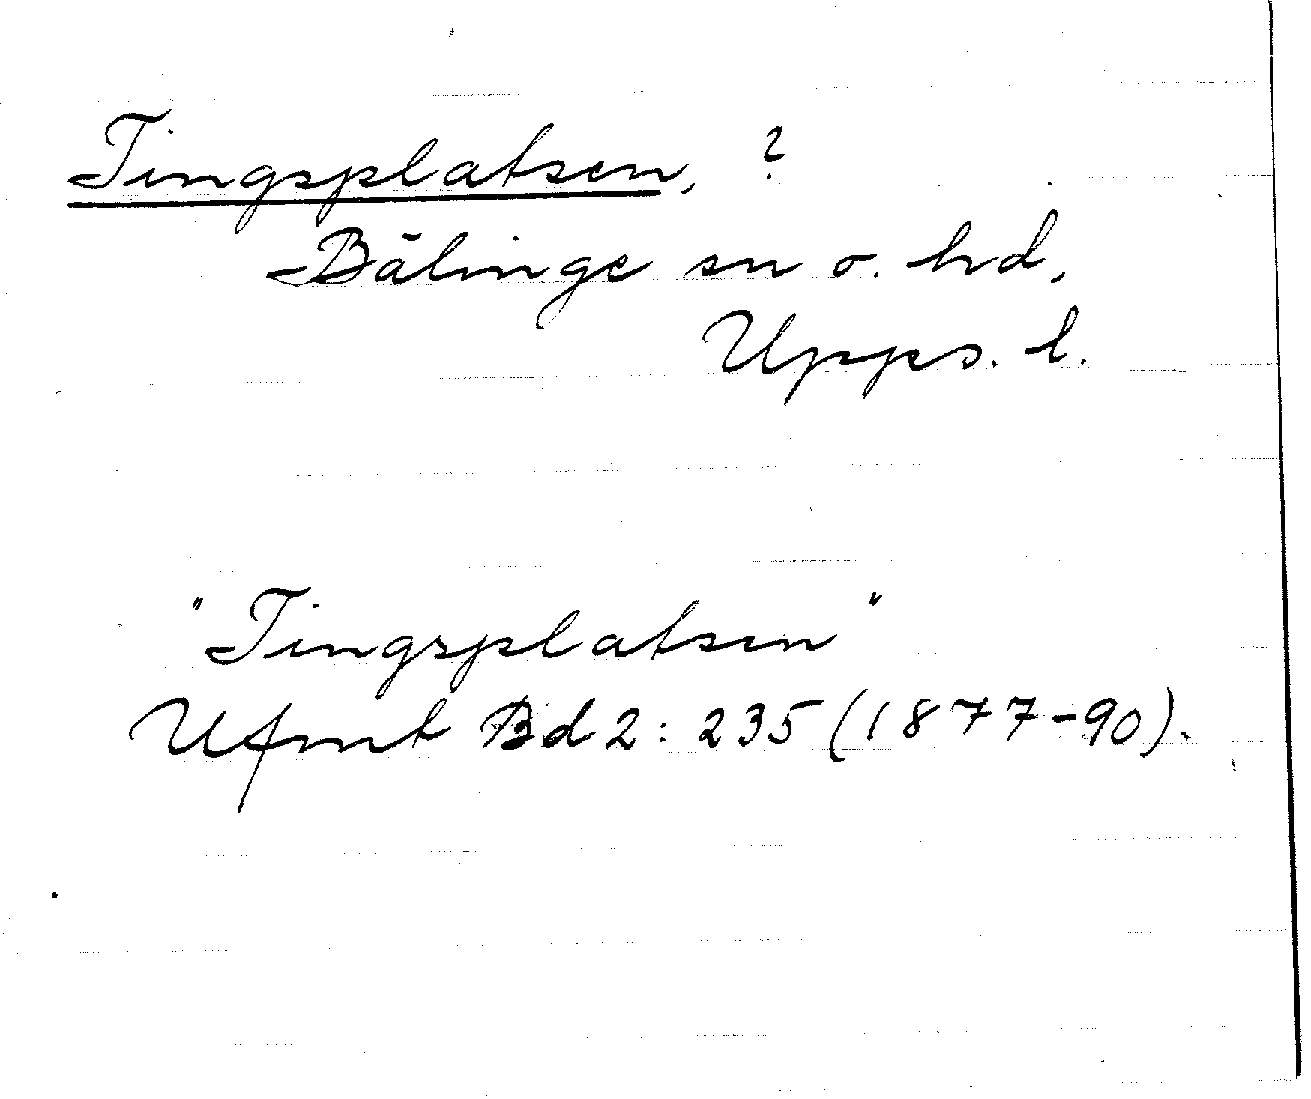 Tingsplatsen, ?
Bälinge sn o. hd,
Upps. l.
"Tingsplatsen"
Ufmt Bd 2: 235 (1877-90).